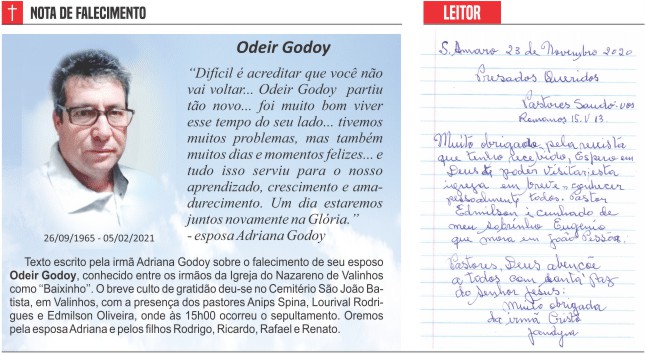 NOTA DE FALECIMENTO
Odeir Godoy
“Difícil é acreditar que você não
vai voltar... Odeir Godoy partiu
tão novo... foi muito bom viver
esse tempo do seu lado... tivemos
muitos problemas, mas também
muitos dias e momentos felizes... e
tudo isso serviu para o nosso
aprendizado, crescimento e ama-
durecimento. Um dia estaremos
juntos novamente na Glória.”
- esposa Adriana Godoy
26/09/1965 - 05/02/2021
Texto escrito pela irmã Adriana Godoy sobre o falecimento de seu esposo
Odeir Godoy, conhecido entre os irmãos da Igreja do Nazareno de Valinhos
como “Baixinho”. O breve culto de gratidão deu-se no Cemitério São João Ba-
tista, em Valinhos, com a presença dos pastores Anips Spina, Lourival Rodri-
gues e Edmilson Oliveira, onde às 15h00 ocorreu o sepultamento. Oremos
pela esposa Adriana e pelos filhos Rodrigo, Ricardo, Rafael e Renato.
LEITOR
S. Amaro 23 de Novembro 2020
Presados Queridos
Pastores Saudo-vos
Romanos 15.V 13
Muito obrigado pela revista
que tenho recebido, Espero em
Deus poder visitar esta
igreja em breve, conhecer
pessoalmente todos. Pastor
Edmilson é cunhado de
meu sobrinho Eugenio
que mora em João Pessoa.
Pastores, Deus abençoe
a todos com santa paz
do senhor Jesus:
Muito obrigada
da irmã Cristo
Jandyra